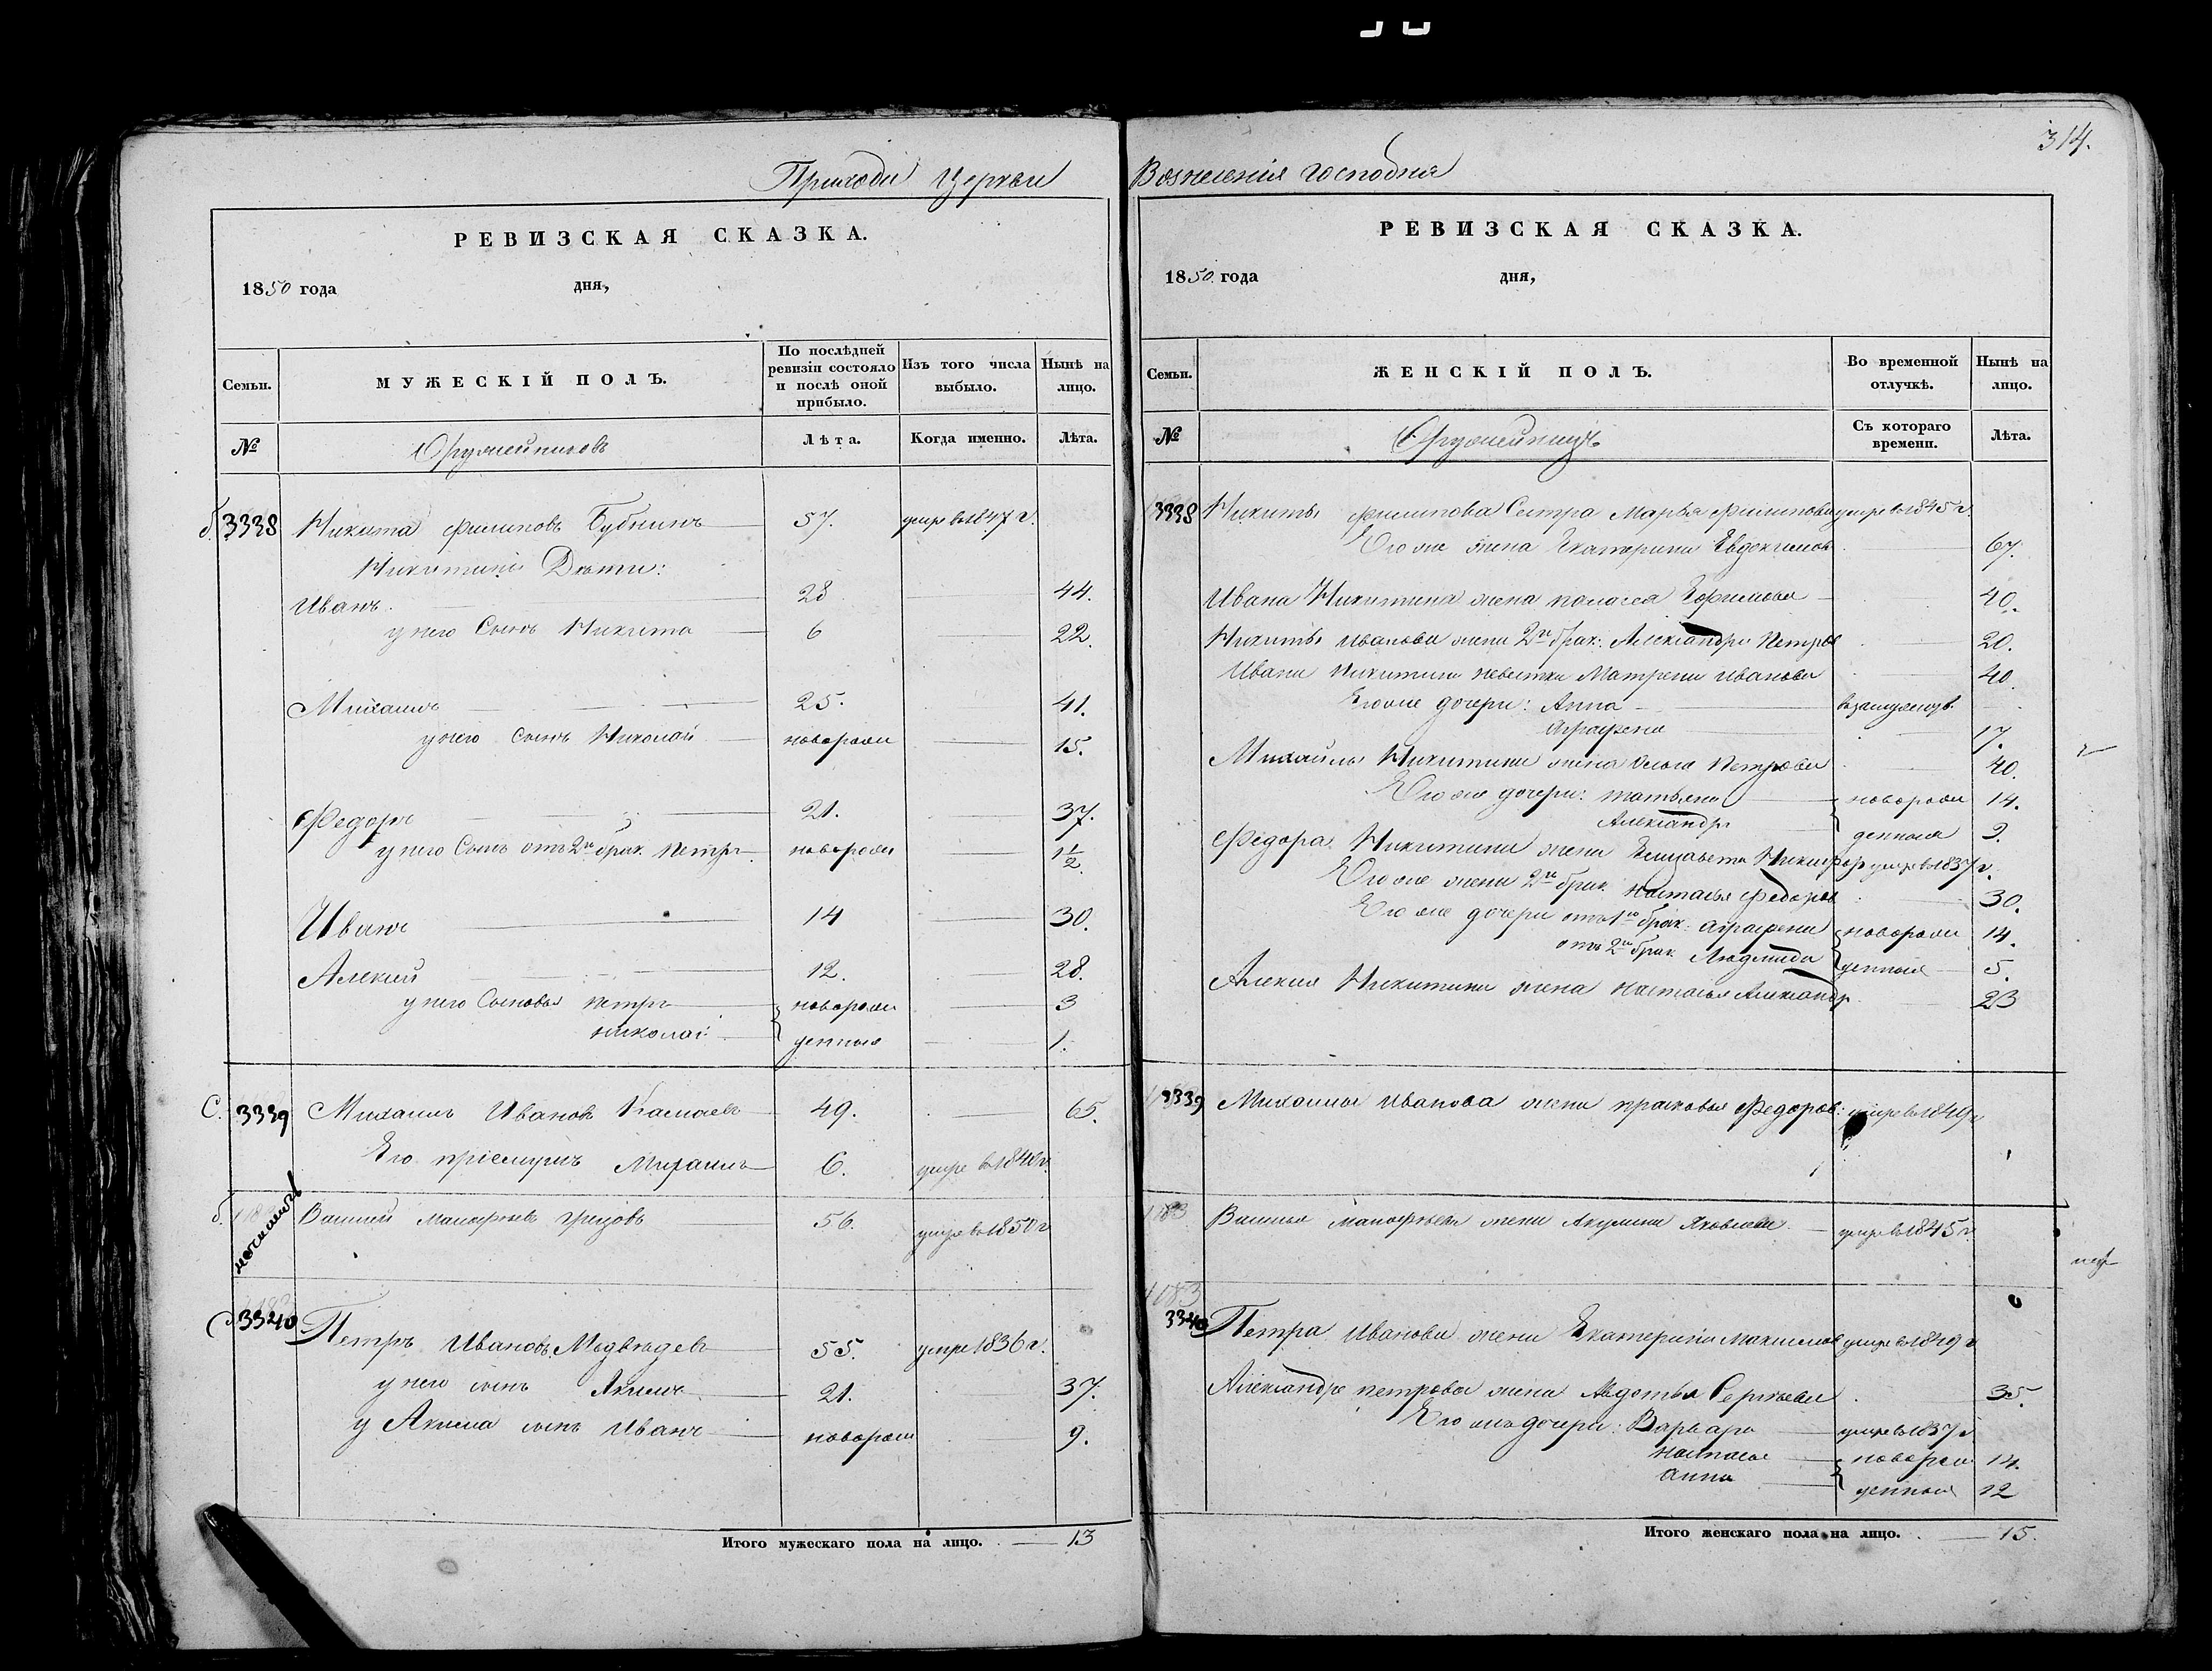 314.
Прихода Церкви Вознесенія Господня
РЕВИЗСКАЯ СКАЗКА.
1850 года дня,
Семьи. МУЖЕСКІЙ ПОЛЪ. По послѣдней ревизіи состояло и послѣ оной прибыло. Изъ того числа выбыло. Нынѣ на лицо.
№ Оружейниковъ Лѣта. Когда именно. Лѣта.
б. 3338 Никита Филиповъ Бубнинъ 57. умре въ 1847 г.
Никитины Дѣти:
Иванъ. 28 44.
у него Сынъ Никита 6 22.
Михаилъ 25. 41.
у него сынъ Николай новорожд 15.
Федоръ 21. 37.
у него Сынъ отъ 2го брак. Петръ новорожд 1 1/2
Иванъ 14 30.
Алексѣй 12. 28.
у него Сыновья Петръ новорож 3
Николай денныя 1.
С. 3339 Михаилъ Ивановъ 49. 65.
Его пріемышъ Михаилъ 6. умре въ 1840 г.
б. Василій 56. умре въ 1850 г
3340 Петръ Ивановъ Медвѣдев 55. умре 1836 г.
у него сынъ Акимъ 21. 37.
у Акима сынъ Иванъ новорож 9.
Итого мужескаго пола на лицо. 13
РЕВИЗСКАЯ СКАЗКА.
1850 года дня,
Семьи. ЖЕНСКІЙ ПОЛЪ. Во временной отлучкѣ. Нынѣ на лицо.
№ Оружейницъ Съ котораго времени. Лѣта.
3338 Никиты Филипова Сестра Марья Филипова умре въ 1845 г.
Его же жена Екатерина Евдокимов 67.
Ивана Никитина жена Ефимова 40.
Никиты Иванова жена 2го брак: Александра Петров 20.
Ивана Никитина невестка Матрена Иванова 40
Его же дочери: Анна в замужеств.
Аграфена 17.
Михайлы Никитина жена Ольга Петрова 40.
Его же дочери: Татьяна новорож 14.
Александра денныя 9.
Федора Никитина жена Елизавета Никифор умре въ 1837 г.
Его же жена 2го брак Настасья Федоров 30.
Его же дочери отъ 1го брак: Аграфена новорож 14.
отъ 2го брак. Людмида денныя 5.
Алексѣя Никитина жена Настасья Александр 23
3339 Михаила Иванова жена Прасковья Федоров: умре въ 1849 г
Василья жена Акулина Яковлева умре въ 1845 г.
1083
3340 Петра Иванова жена Екатерина Максимов умре въ 1849 г
Александра Петрова жена Авдотья Сергѣева 35.
Его же дочери: Варвара умре въ 1837 г
Настасья новорож 14.
Анна денныя 12
Итого женскаго пола на лицо. 15.